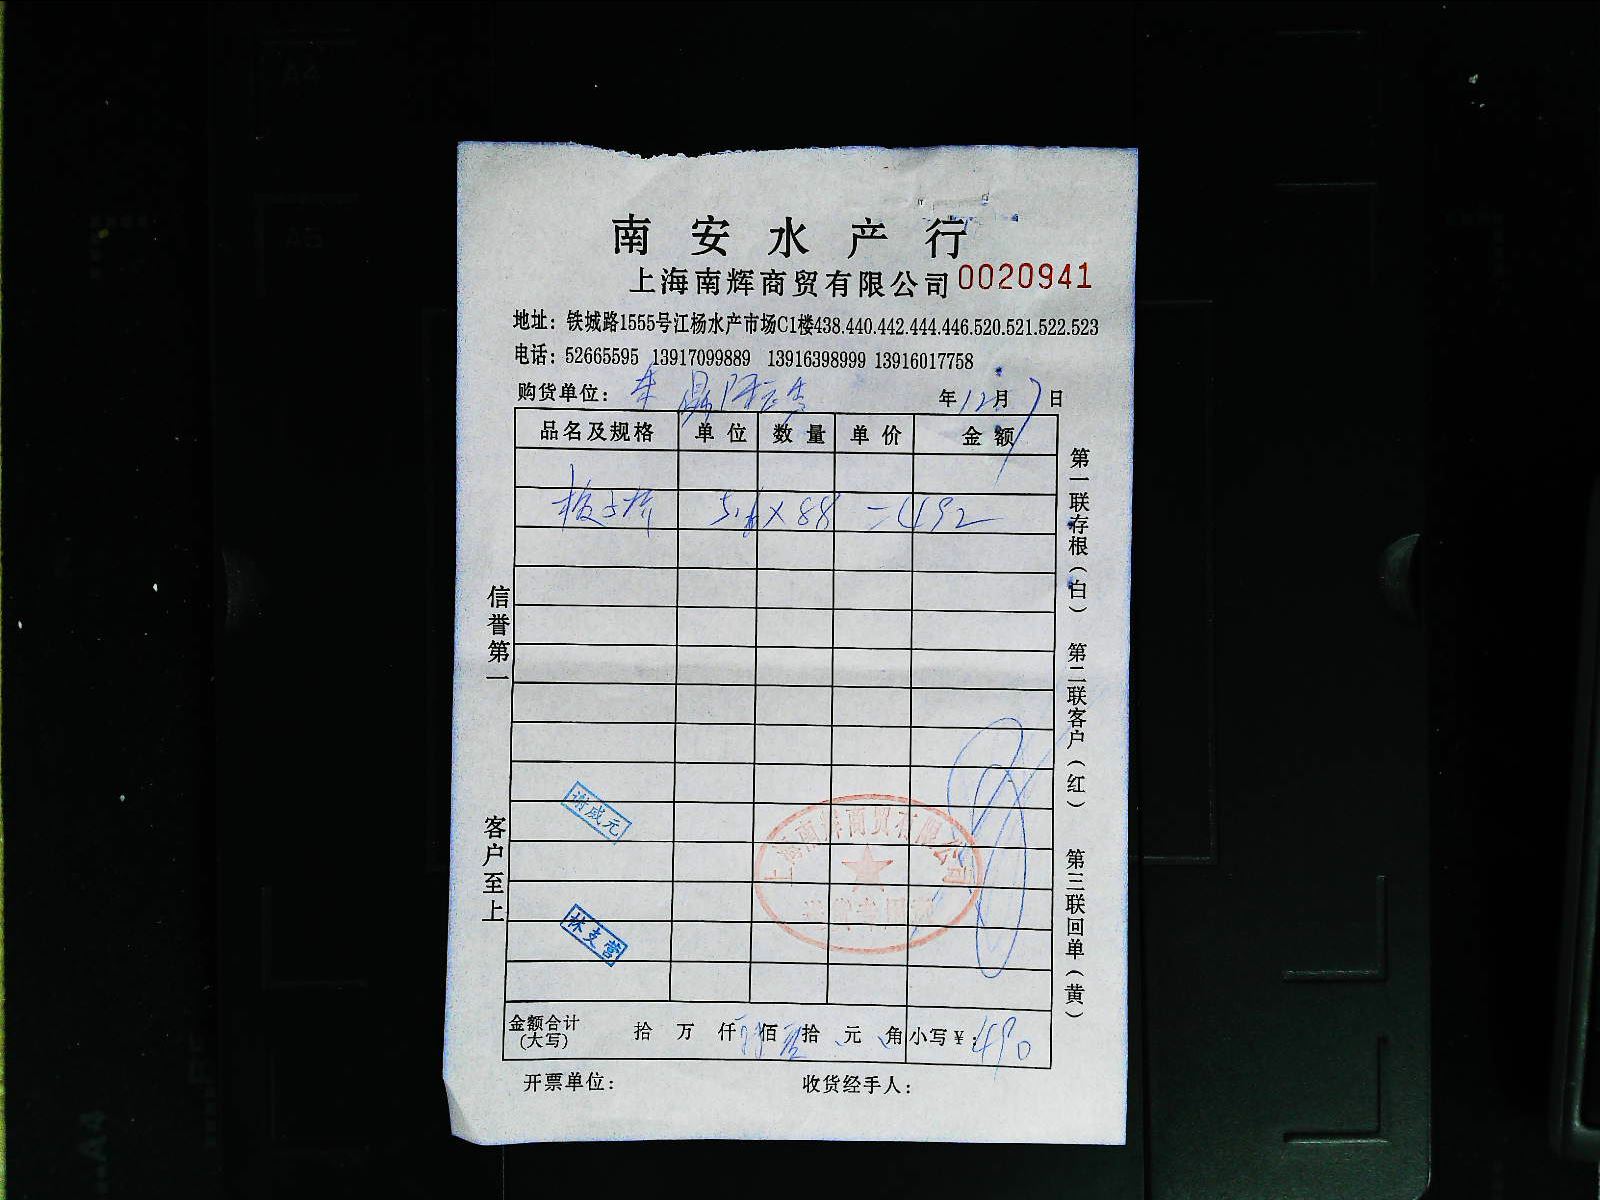 南安水产行
上海南辉商贸有限公司 0020941
地址：铁城路1555号江杨水产市场C1楼438.440.442.444.446.520.521.522.523
电话：52665595 13917099889 13916398999 13916017758
购货单位： 年12月7日
品名及规格 单位 数量 单价 金额
5.6×88=492
谢成元
上海南辉商贸有限公司
林支营
金额合计（大写） 拾 万 仟 佰 拾 元 角 小写￥：490
开票单位： 收货经手人：
信誉第一
客户至上
第一联存根（白） 第二联客户（红） 第三联回单（黄）
A4
A5